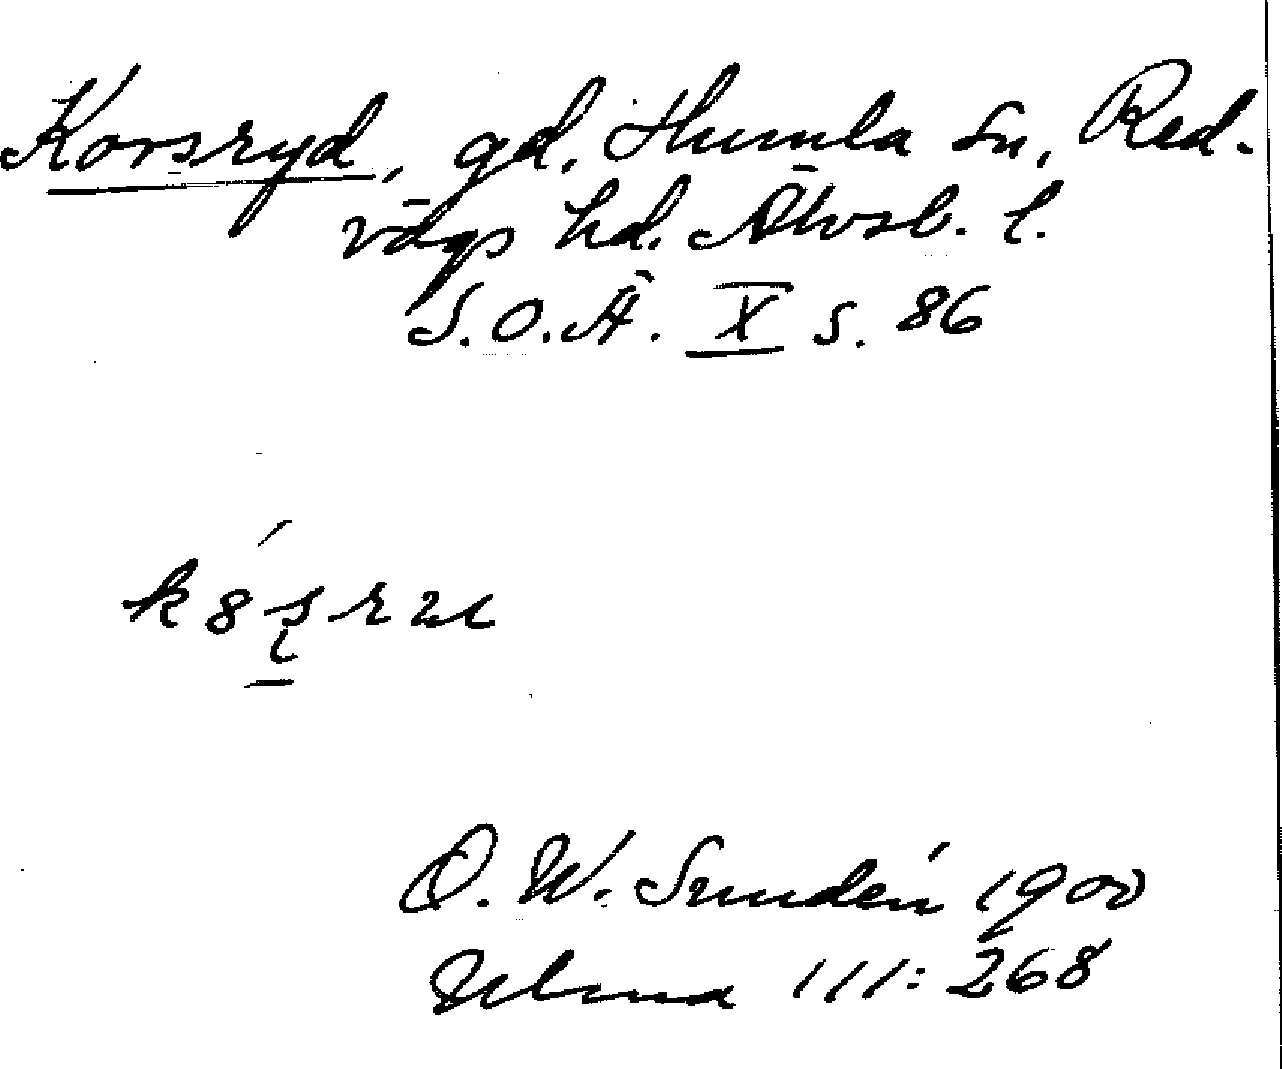 Korsryd, gd, Humla sn, Red-
vägs hd. Älvsb. l.
S.O.Ä. X s. 86
D. W. Sundén 1900
Ulma 111:268